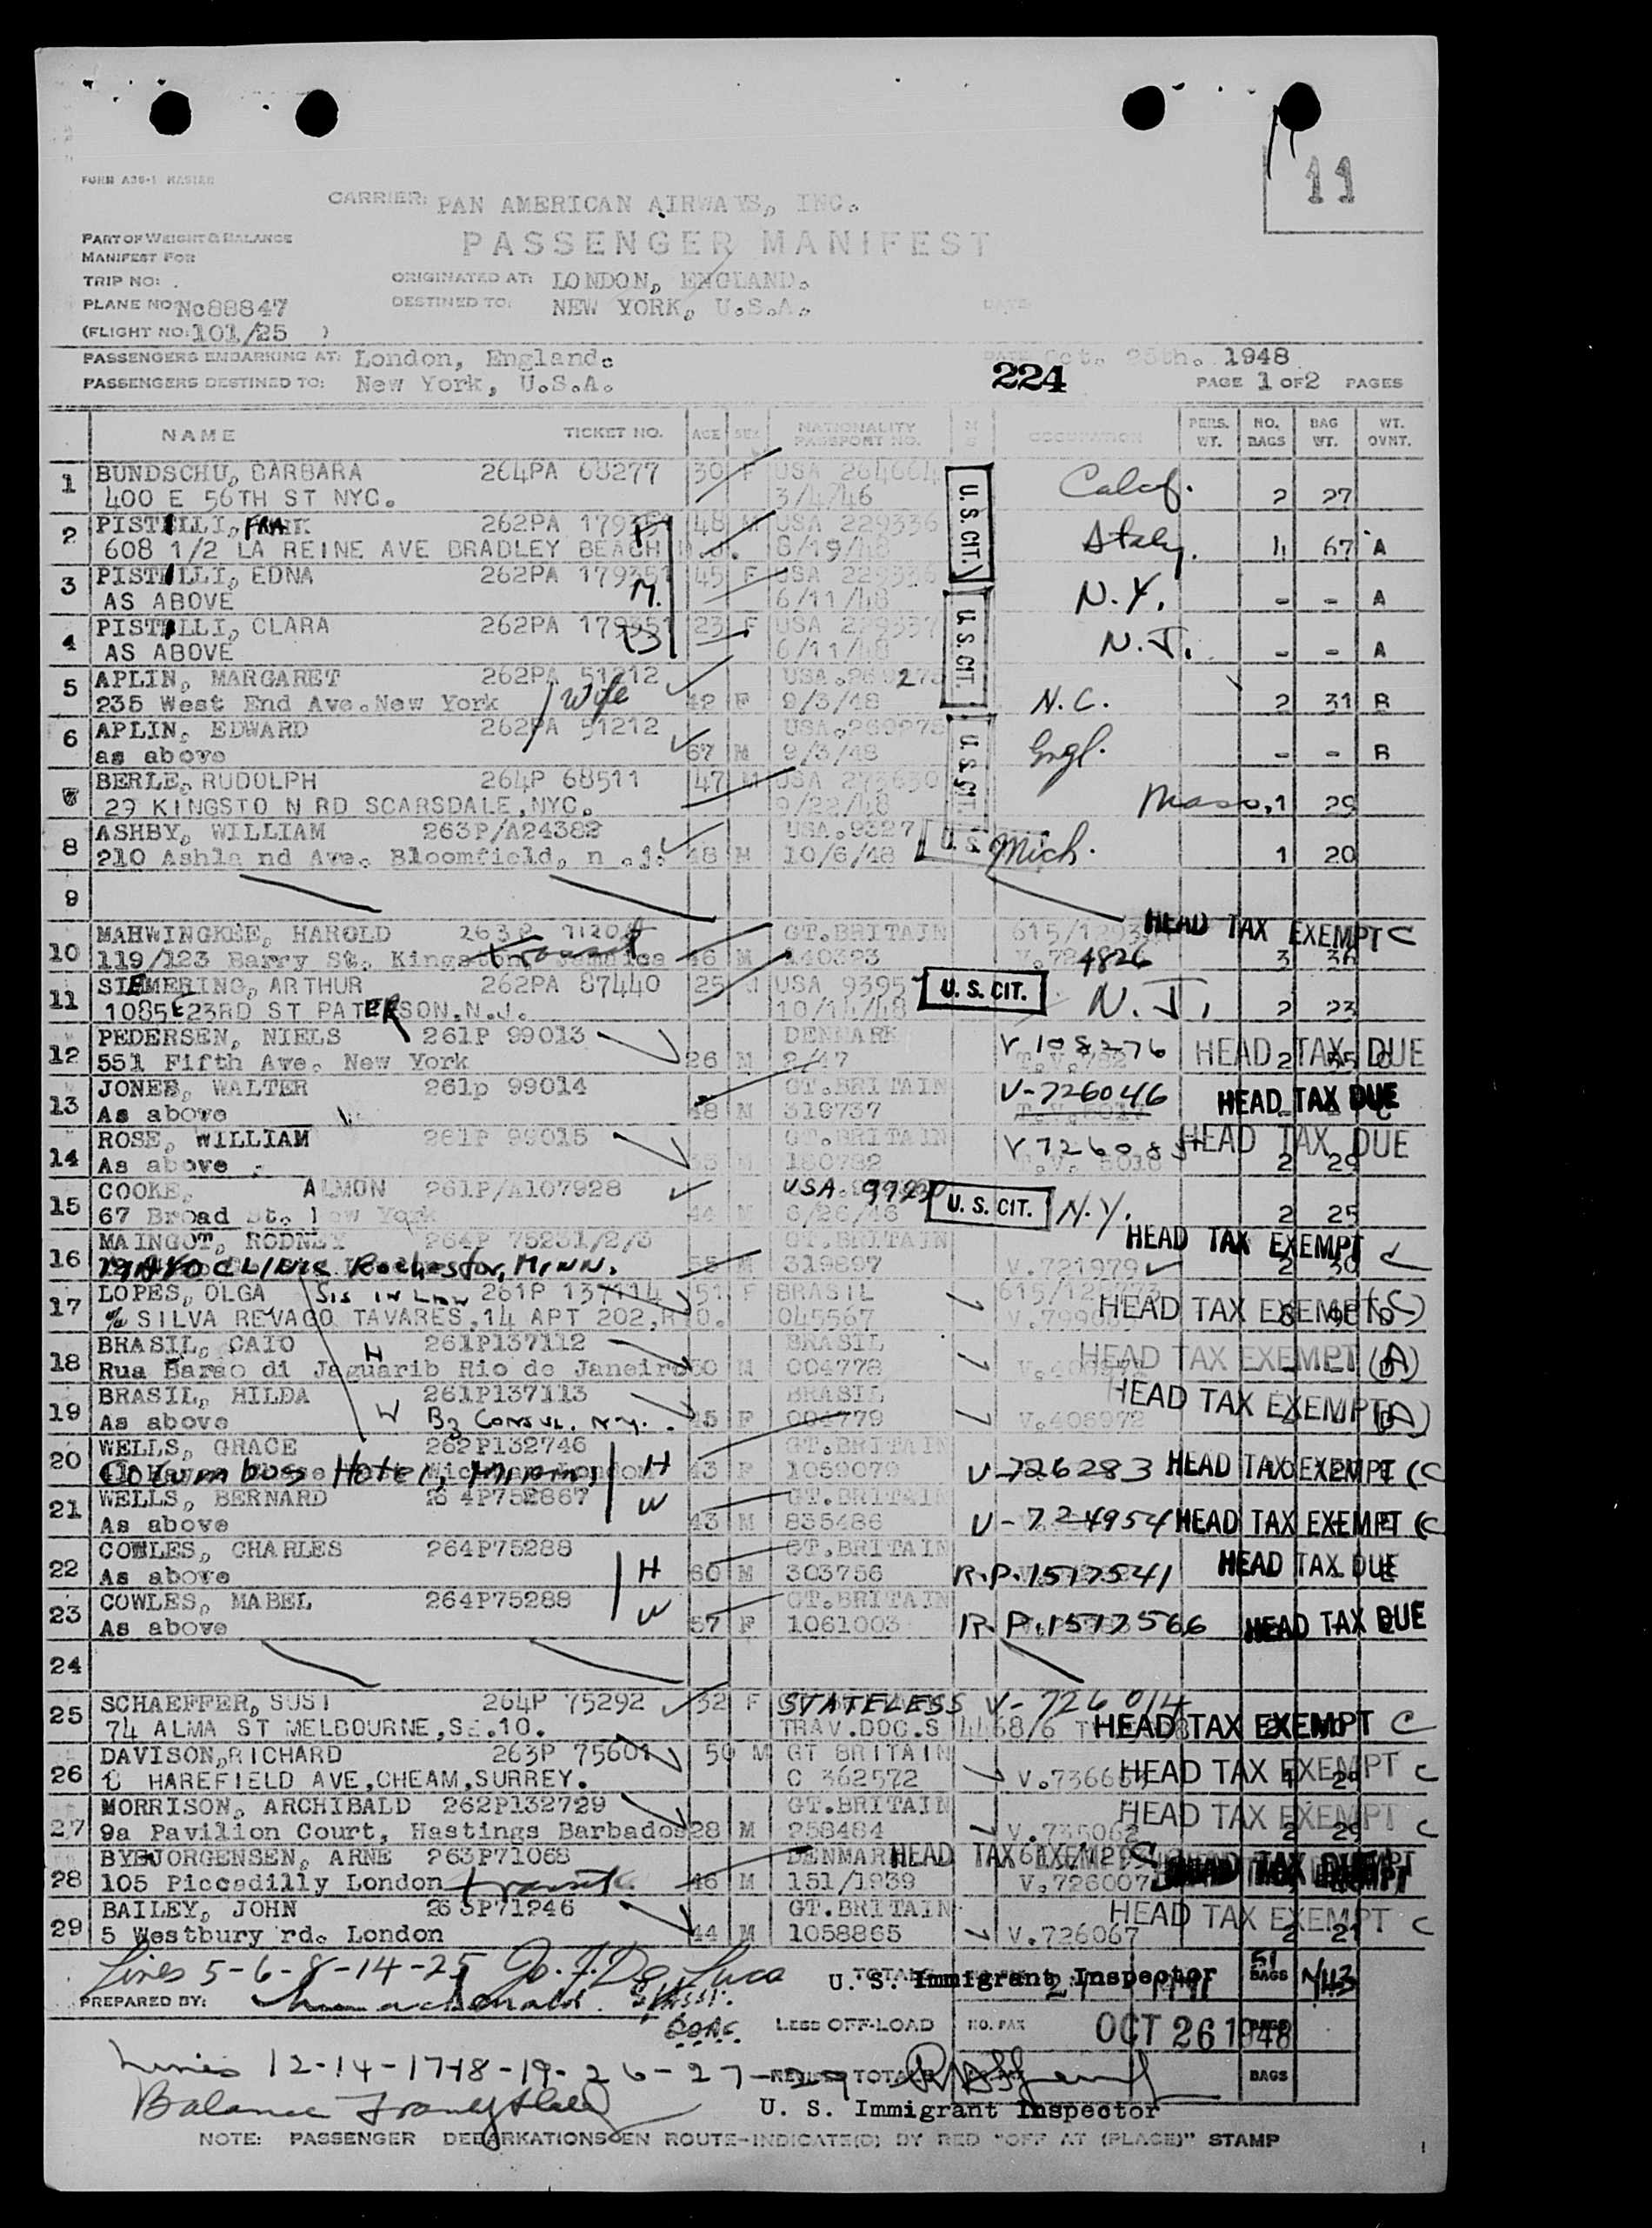 11
FORM A36-1 MASTER
CARRIER: PAN AMERICAN AIRWAYS, INC.
PART OF WEIGHT & BALANCE
PASSENGER MANIFEST
MANIFEST FOR
TRIP NO: .
ORIGINATED AT: LONDON, ENGLAND.
PLANE NO Nc88847
DESTINED TO: NEW YORK, U.S.A.
DATE
(FLIGHT NO: 101/25 )
PASSENGERS EMBARKING AT: London, England.
DATE Oct. 25th. 1948
PASSENGERS DESTINED TO: New York, U.S.A.
224
PAGE 1 OF 2 PAGES
NAME TICKET NO. AGE SEX NATIONALITY PASSPORT NO. OCCUPATION PERS. WT. NO. BAGS BAG WT. WT. OVNT.
1 BUNDSCHU, BARBARA 264PA 68277 30 F USA 264664
400 E 56TH ST NYC. 3/4/46 U.S. CIT. Calif. 2 27
2 PISTILLI, FRANK 262PA 48 M USA 229336
608 1/2 LA REINE AVE BRADLEY BEACH 6/19/48 Italy. 4 67 A
3 PISTILLI, EDNA 262PA 179351 45 F USA 229336
AS ABOVE M. 6/11/48 N.Y. - - A
4 PISTILLI, CLARA 262PA 179351 23 F USA 229337
AS ABOVE 6/11/48 U.S. CIT. N.J. - - A
5 APLIN, MARGARET 262PA 51212 USA.
235 West End Ave. New York Wife 42 F 9/3/48 N.C. 2 31 B
6 APLIN, EDWARD 262PA 51212 USA.269275
as above 67 M 9/3/48 U.S. CIT. Engl. - - B
7 BERLE, RUDOLPH 264P 68511 47 M USA 273630
29 KINGSTO N RD SCARSDALE, NYC. 9/22/48 Mass, 1 29
8 ASHBY, WILLIAM 263P/A24382 USA.9327
210 Ashla nd Ave. Bloomfield, n .j. 48 M 10/6/48 U.S. Mich. 1 20
9
10 MAHWINGKEE, HAROLD 263P 71204 GT.BRITAIN HEAD TAX EXEMPT C
119/123 Barry St. Kingston, Jamaica transit 46 M 140323 4826 3 36
11 SIEMERING, ARTHUR 262PA 87440 25 M USA 9395 U. S. CIT.
1085 E 23RD ST PATERSON, N.J. 10/14/48 N.J. 2 23
12 PEDERSEN, NIELS 261P 99013 DENMARK V 108276 HEAD TAX DUE
551 Fifth Ave. New York 26 M 2/47 T.V.782 2 55 C
13 JONES, WALTER 261p 99014 GT.BRITAIN V-726046 HEAD TAX DUE
As above 48 M 318737
14 ROSE, WILLIAM 261P 99015 GT.BRITAIN HEAD TAX DUE
As above 160782 2 29
15 COOKE, ALMON 261P/A107928 USA. U. S. CIT. N.Y.
67 Broad St. New York 44 M 6/26/46 2 25
16 MAINGOT, RODNEY 264P 75231/2/3 GT.BRITAIN HEAD TAX EXEMPT C
MAYO CLINIC Rochester, MINN. M 319897 V.721979 2 30
17 LOPES, OLGA SIS IN LAW 261P 137114 51 F BRASIL HEAD TAX EXEMPT (C)
% SILVA REVAGO TAVARES, 14 APT 202, RIO. 045567
18 BRASIL, CAIO H 261P137112 BRASIL HEAD TAX EXEMPT (A)
Rua Barao di Jaguarib Rio de Janeiro 50 M 004778
19 BRASIL, HILDA 261P137113 BRASIL HEAD TAX EXEMPT (A)
As above W Bz CONSUL. N.Y. 45 F 004779 V.406972
20 WELLS, GRACE 262P132746 GT.BRITAIN
COLUMBUS Hotel, Miami, H 43 F 1059079 V-726283 HEAD TAX EXEMPT (C
21 WELLS, BERNARD 264P752867 W GT.BRITAIN
As above 43 M 835486 V-724954 HEAD TAX EXEMPT (C
22 COWLES, CHARLES 264P75288 H GT.BRITAIN HEAD TAX DUE
As above 60 M 303756 R.P.1517541
23 COWLES, MABEL 264P75289 W GT.BRITAIN
As above 57 F 1061003 R.P.1517566 HEAD TAX DUE
24
25 SCHAEFFER, SUSI 264P 75292 32 F STATELESS V-726014
74 ALMA ST MELBOURNE, SE.10. TRAV.DOC.S 4468/6 HEAD TAX EXEMPT C
26 DAVISON, RICHARD 263P 75601 50 M GT BRITAIN
HAREFIELD AVE, CHEAM, SURREY. C 362572 HEAD TAX EXEMPT C
27 MORRISON, ARCHIBALD 262P132729 GT.BRITAIN HEAD TAX EXEMPT C
9a Pavilion Court, Hastings Barbados 28 M 258484 V.735062 2 29
28 BYEJORGENSEN, ARNE 263P71068 DENMARK HEAD TAX EXEMPT C
105 Piccadilly London transit 46 M 151/1939 V.726007
29 BAILEY, JOHN 263P71246 GT.BRITAIN HEAD TAX EXEMPT C
5 Westbury rd. London 44 M 1058865 V.726067 2 21
Lines 5-6-8-14-25 Jo. J. De Luca
TOTALS U. S. Immigrant Inspector 51 BAGS
PREPARED BY:
LESS OFF-LOAD NO. PAX OCT 26 1948
Lines 12-14-17-18-19-26-27-29 TOTALS BAGS
Balance
U. S. Immigrant Inspector
NOTE: PASSENGER DEBARKATIONS EN ROUTE-INDICATE(D) BY RED "OFF AT (PLACE)" STAMP